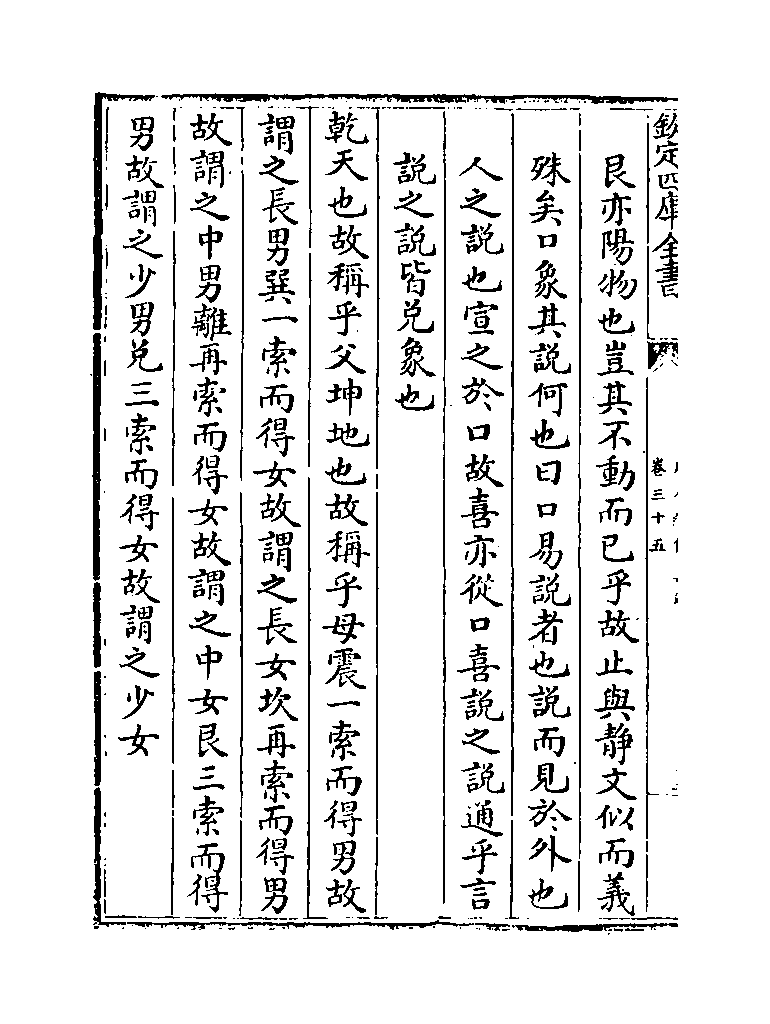 欽定四庫全書
卷三十五
艮亦陽物也豈其不動而已乎故止與静文似而義
殊矣口象其説何也曰口易説者也説而見於外也
人之説也宣之於口故喜亦從口喜説之説通乎言
説之説皆兌象也
乾天也故稱乎父坤地也故稱乎母震一索而得男故
謂之長男巽一索而得女故謂之長女坎再索而得男
故謂之中男離再索而得女故謂之中女艮三索而得
男故謂之少男兌三索而得女故謂之少女